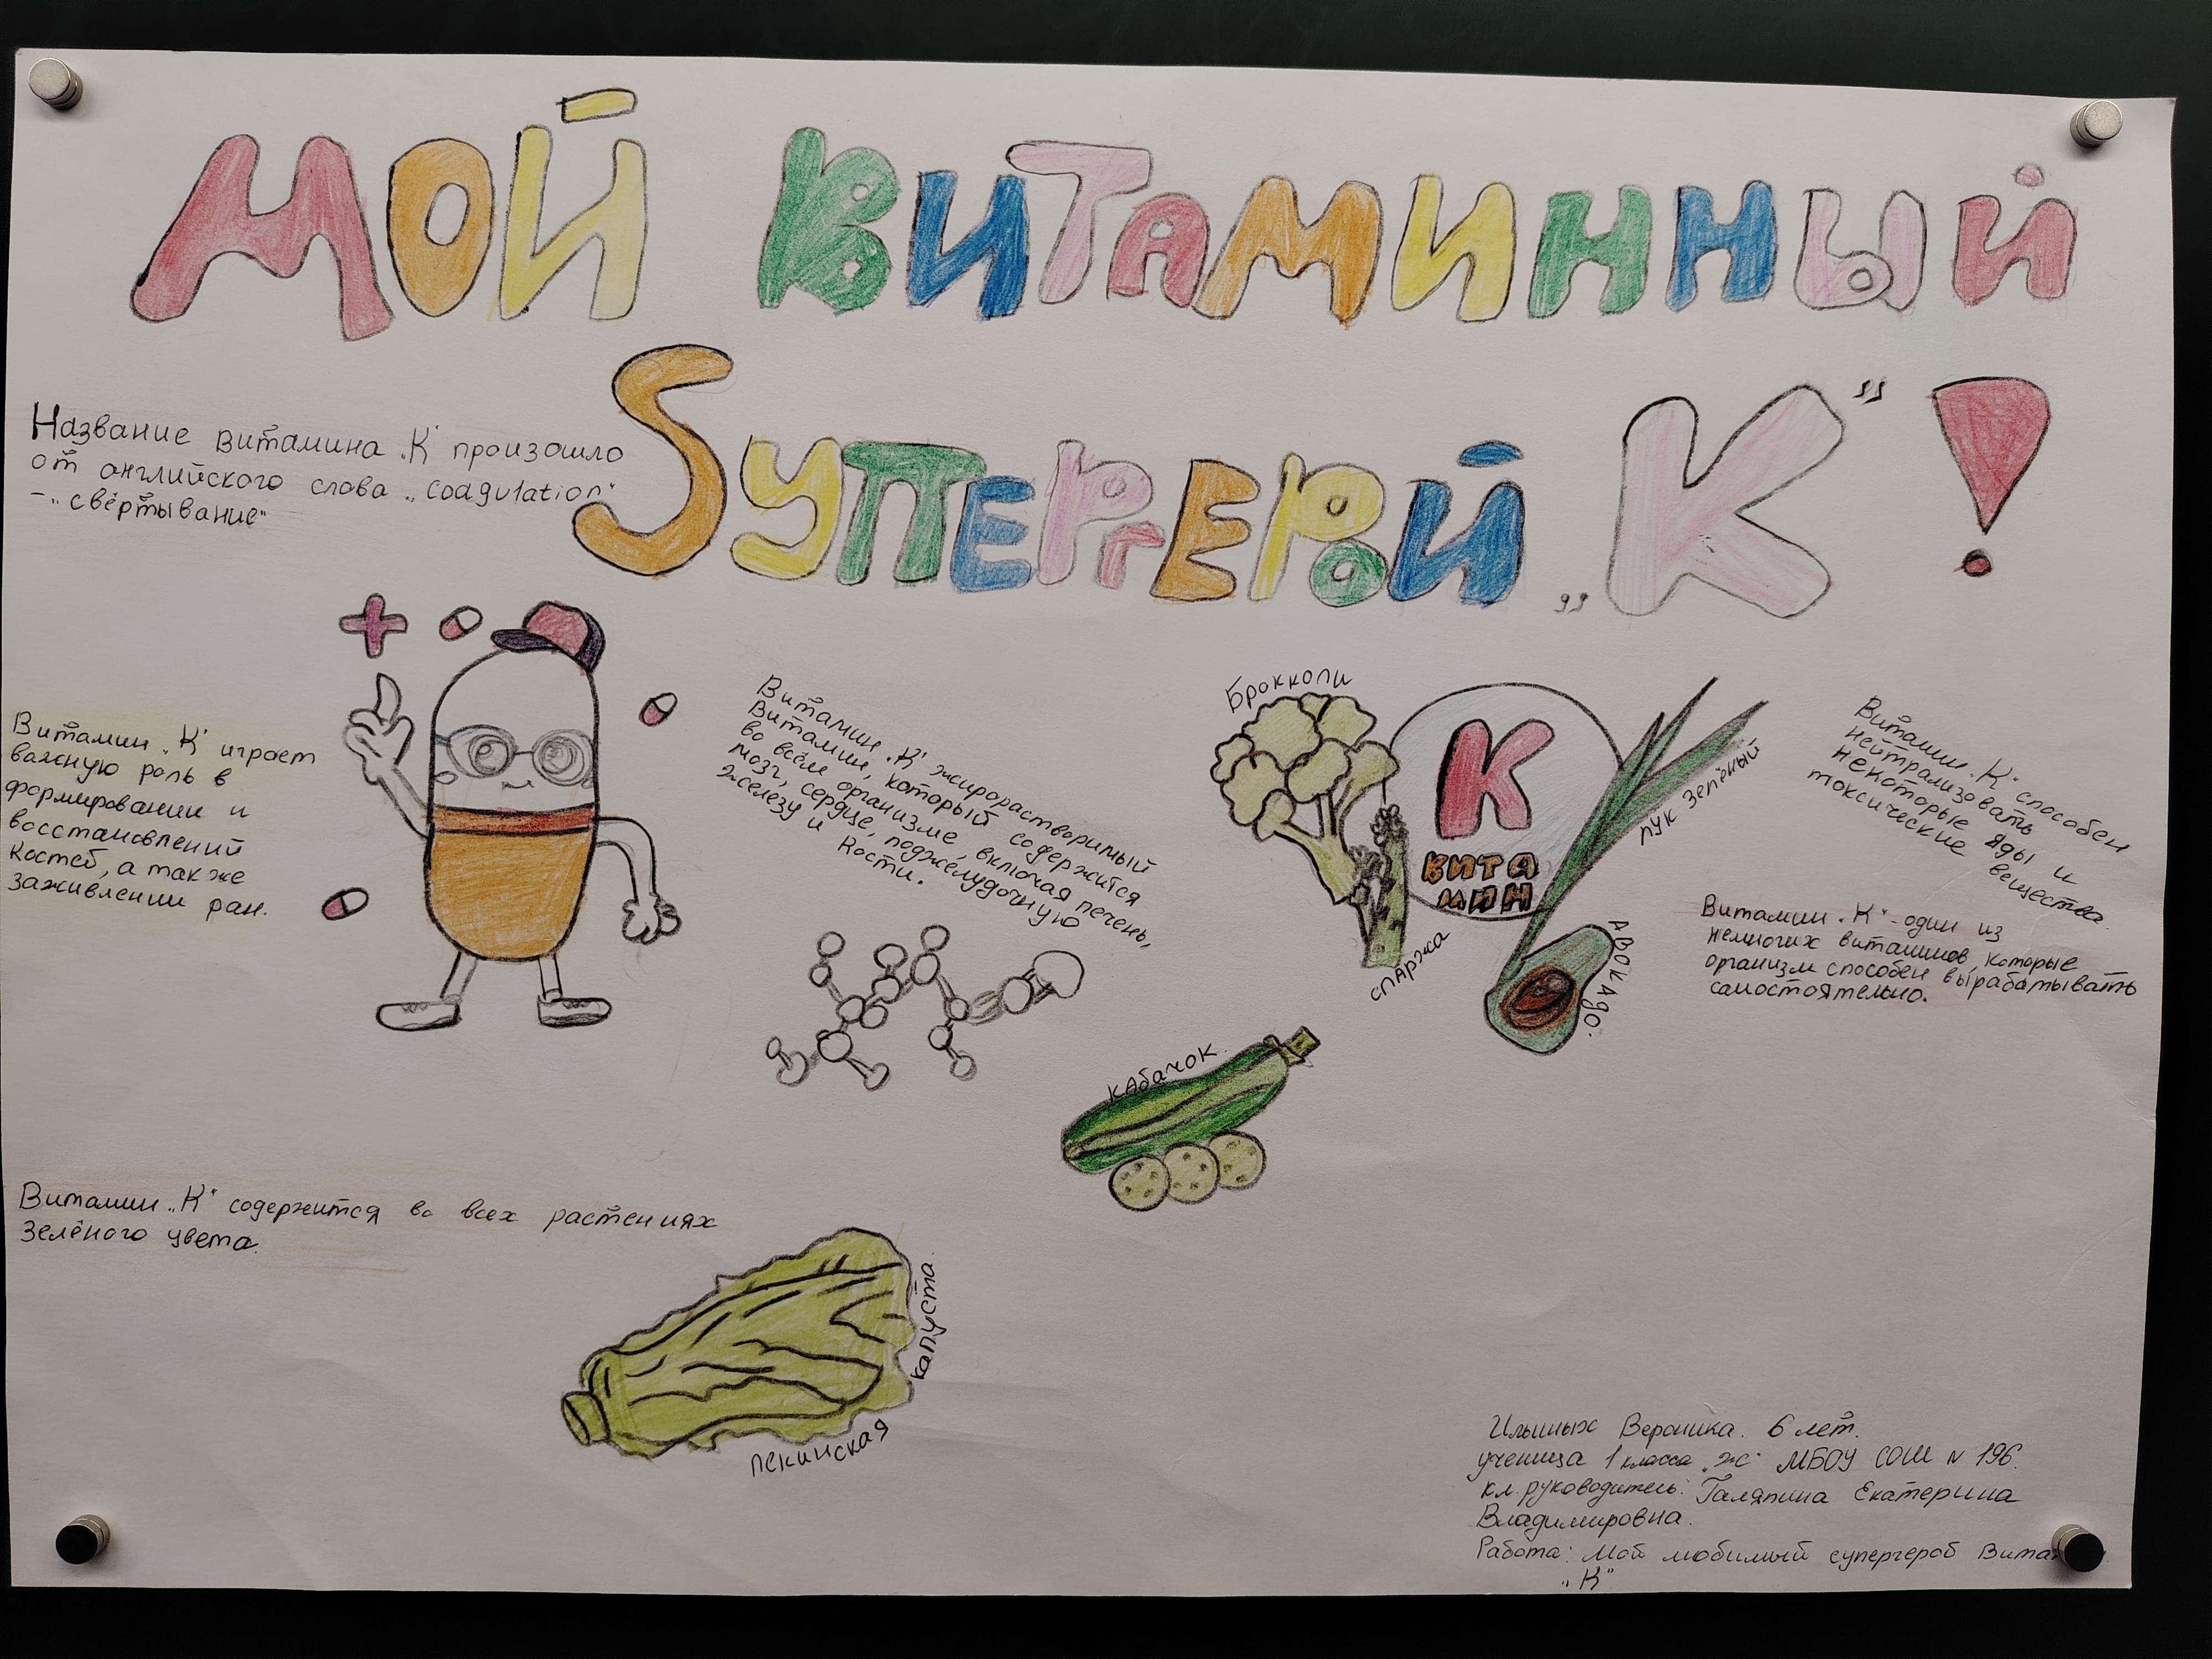 МОЙ ВИТАМИННЫЙ
SУПЕРГЕРОЙ „К"!
Название витамина „К" произошло
от английского слова „coagulation"
-„свёртывание"
Витамин „К" играет
важную роль в
формировании и
восстановлений
костей, а так же
заживлении ран.
Витамин „К" жирорастворимый
витамин, который содержится
во всём организме, включая печень,
мозг, сердце, поджелудочную
железу и
кости.
Брокколи
К
ВИТА
МИН
лук зелёный
спаржа
АВОКАдо.
Витамин „К" способен
нейтрализовать
некоторые яды и
токсические вещества.
Витамин „К" - один из
немногих витаминов, которые
организм способен вырабатывать
самостоятельно.
КАбачок
Витамин „К" содержится во всех растениях
зелёного цвета.
пекинская
капуста
Ильиных Вероника. 6 лет.
ученица 1 класса „Ж" МБОУ СОШ N 196.
кл. руководитель: Галяпина Екатерина
Владимировна.
Работа: Мой любимый супергерой
„К"